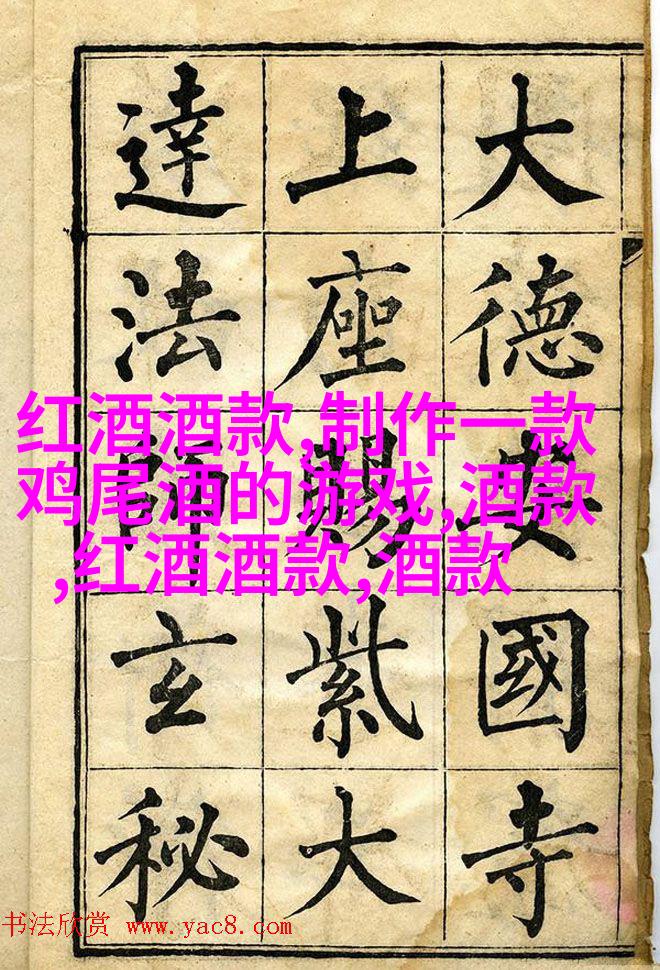 大德安國寺
上座賜紫大
達法師玄秘
红酒酒款,制作一款
鸡尾酒的游戏,酒款
,红酒酒款,酒款
书法欣赏 www.yac8.com